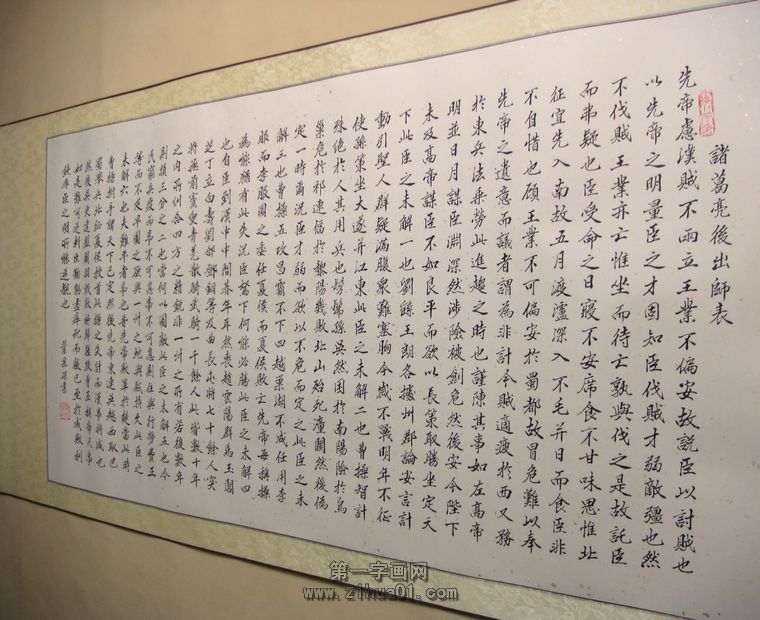 諸葛亮後出師表
先帝慮漢賊不兩立王業不偏安故託臣以討賊也
以先帝之明量臣之才固知臣伐賊才弱敵彊也然
不伐賊王業亦亡惟坐而待亡孰與伐之是故託臣
而弗疑也臣受命之日寢不安席食不甘味思惟北
征宜先入南故五月渡瀘深入不毛并日而食臣非
不自惜也顧王業不可偏安於蜀都故冒危難以奉
先帝之遺意而議者謂為非計今賊適疲於西又務
於東兵法乘勞此進趨之時也謹陳其事如左高帝
明並日月謀臣淵深然涉險被創危然後安今陛下
未及高帝謀臣不如良平而欲以長策取勝坐定天
下此臣之未解一也劉繇王朗各據州郡論安言計
動引聖人群疑滿腹眾難塞胸今歲不戰明年不征
使孫策坐大遂并江東此臣之未解二也曹操智計
殊絕於人其用兵也髣髴孫吳然困於南陽險於烏
巢危於祁連偪於黎陽幾敗北山殆死潼關然後偽
定一時爾況臣才弱而欲以不危而定之此臣之未
解三也曹操五攻昌霸不下四越巢湖不成任用李
服而李服圖之委任夏侯而夏侯敗亡先帝每稱操
為能猶有此失況臣駑下何能必勝此臣之未解四
也自臣到漢中中間朞年耳然喪趙雲陽群馬玉閻
芝丁立白壽劉郃鄧銅等及曲長屯將七十餘人突
將無前賨叟青羌散騎武騎一千餘人此皆數十年
之內所糾合四方之精銳非一州之所有若復數年
則損三分之二也當何以圖敵此臣之未解五也今
民窮兵疲而事不可息事不可息則住與行勞費正
等而不及早圖之欲以一州之地與賊持久此臣之
未解六也夫難平者事也昔先帝敗軍於楚當此時
曹操拊手謂天下已定然後先帝東連吳越西取巴
蜀舉兵北征夏侯授首此操之失計而漢事將成也
然後吳更違盟關羽毀敗秭歸蹉跌曹丕稱帝凡事
如是難可逆料臣鞠躬盡瘁死而後已至於成敗利
鈍非臣之明所能逆覩也
書
第一字画网
www.zihua01.com